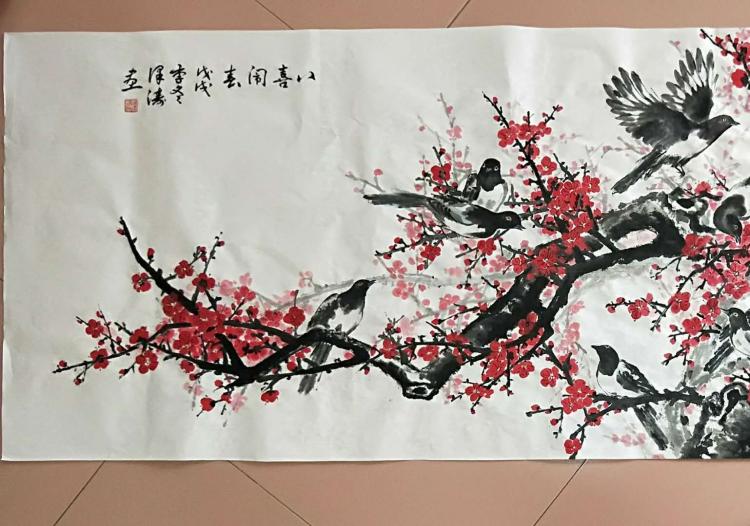 八
喜
闹
春
戊戌
季冬
泽涛
画